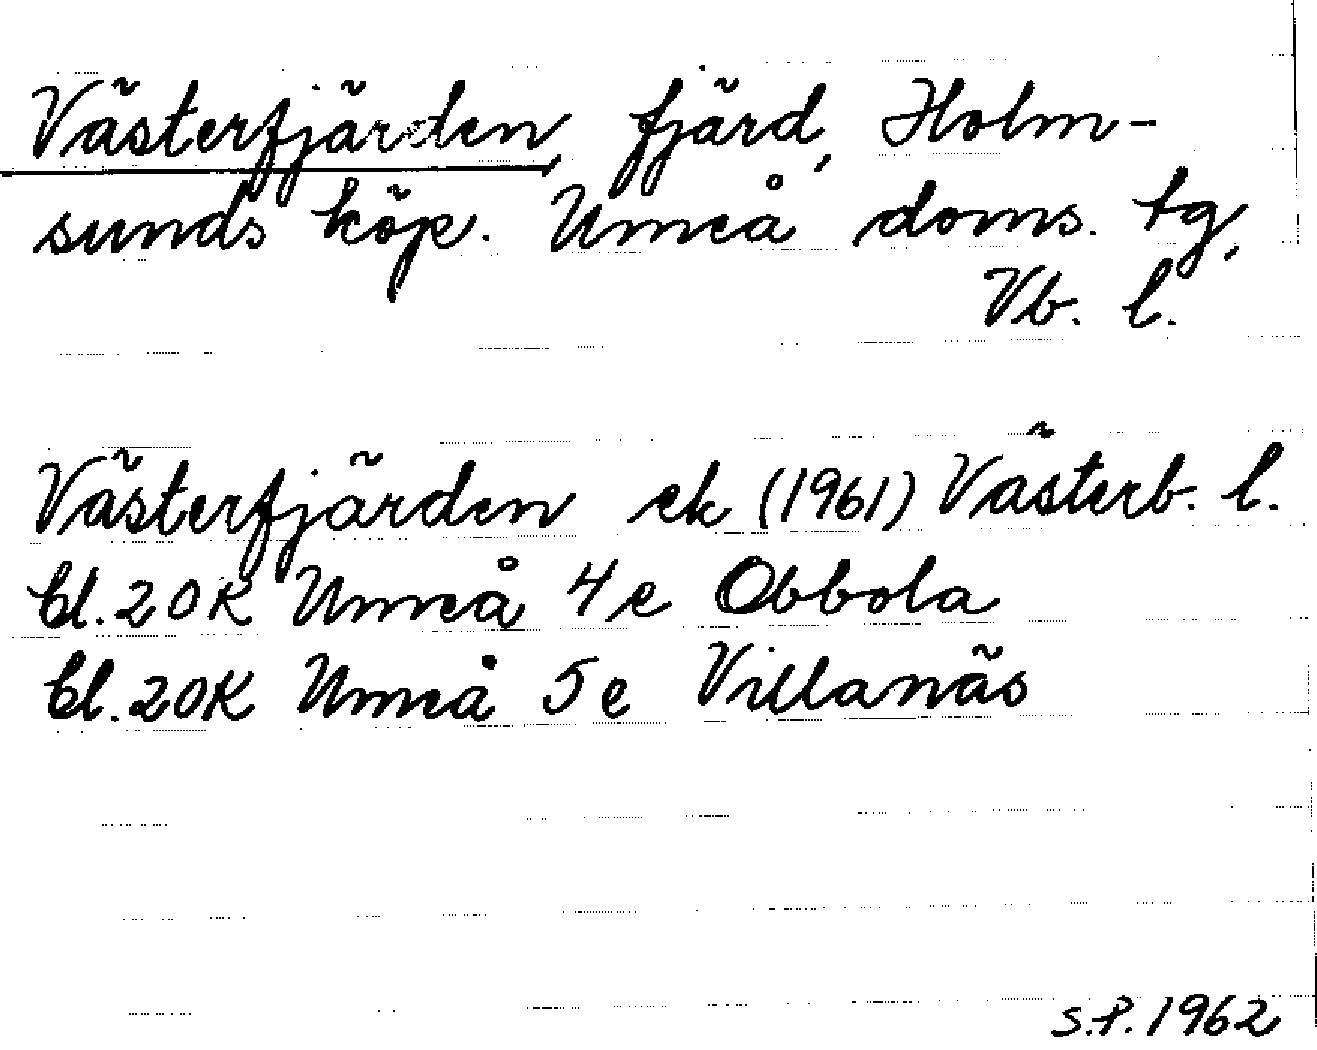 Västerfjärden, fjärd, Holm-
sunds köp. Umeå doms. tg,
Vb. l.
Västerfjärden ek (1961) Västerb. l.
bl. 20K Umeå 4e Obbola
bl. 20K Umeå 5e Villanäs
S.P. 1962